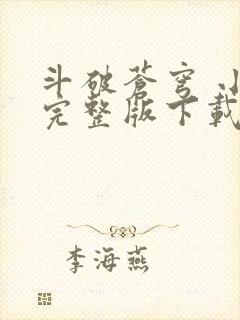 斗破苍穹
完整版下载
李海燕